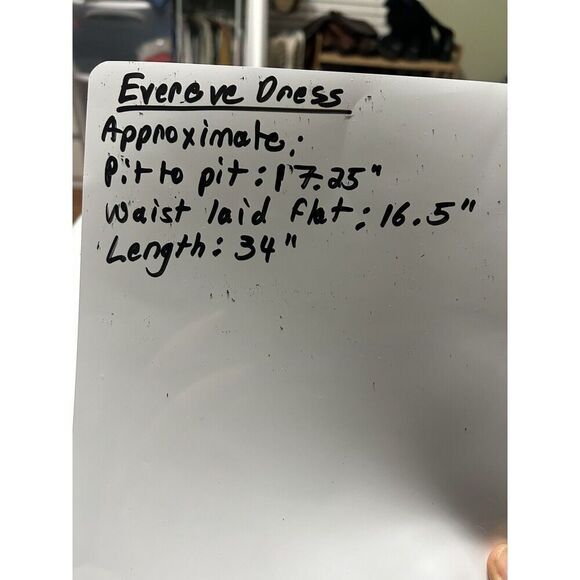 Evereve Dress
Approximate:
Pit to pit: 17.25"
Waist laid flat: 16.5"
Length: 34"